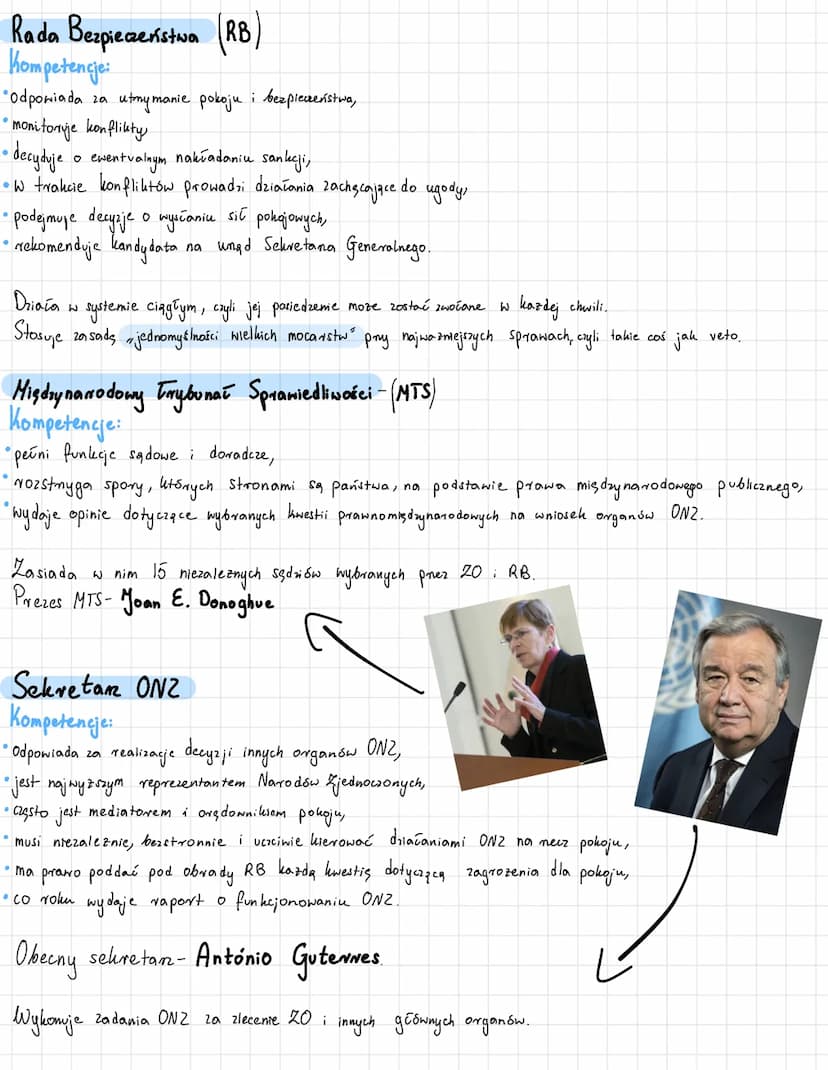 Rada Bezpieczeństwa (RB)
Kompetencje:
• odpowiada za utrzymanie pokoju i bezpieczeństwa,
• monitoruje konflikty,
• decyduje o ewentualnym nakładaniu sankcji,
• w trakcie konfliktów prowadzi działania zachęcające do ugody,
• podejmuje decyzje o wysłaniu sił pokojowych,
• rekomenduje kandydata na urząd Sekretarza Generalnego.
Działa w systemie ciągłym, czyli jej posiedzenie może zostać zwołane w każdej chwili.
Stosuje zasadę „jednomyślności wielkich mocarstw" przy najważniejszych sprawach, czyli takie coś jak veto.
Międzynarodowy Trybunał Sprawiedliwości - (MTS)
Kompetencje:
• pełni funkcje sądowe i doradcze,
• rozstrzyga spory, których stronami są państwa, na podstawie prawa międzynarodowego publicznego,
• wydaje opinie dotyczące wybranych kwestii prawnomiędzynarodowych na wniosek organów ONZ.
Zasiada w nim 15 niezależnych sędziów wybranych przez ZO i RB.
Prezes MTS - Joan E. Donoghue
Sekretarz ONZ
Kompetencje:
• odpowiada za realizacje decyzji innych organów ONZ,
• jest najwyższym reprezentantem Narodów Zjednoczonych,
• często jest mediatorem i orędownikiem pokoju,
• musi niezależnie, bezstronnie i uczciwie kierować działaniami ONZ na rzecz pokoju,
• ma prawo poddać pod obrady RB każdą kwestię dotyczącą zagrożenia dla pokoju,
• co roku wydaje raport o funkcjonowaniu ONZ.
Obecny sekretarz - António Guterres.
Wykonuje zadania ONZ za zlecenie ZO i innych głównych organów.